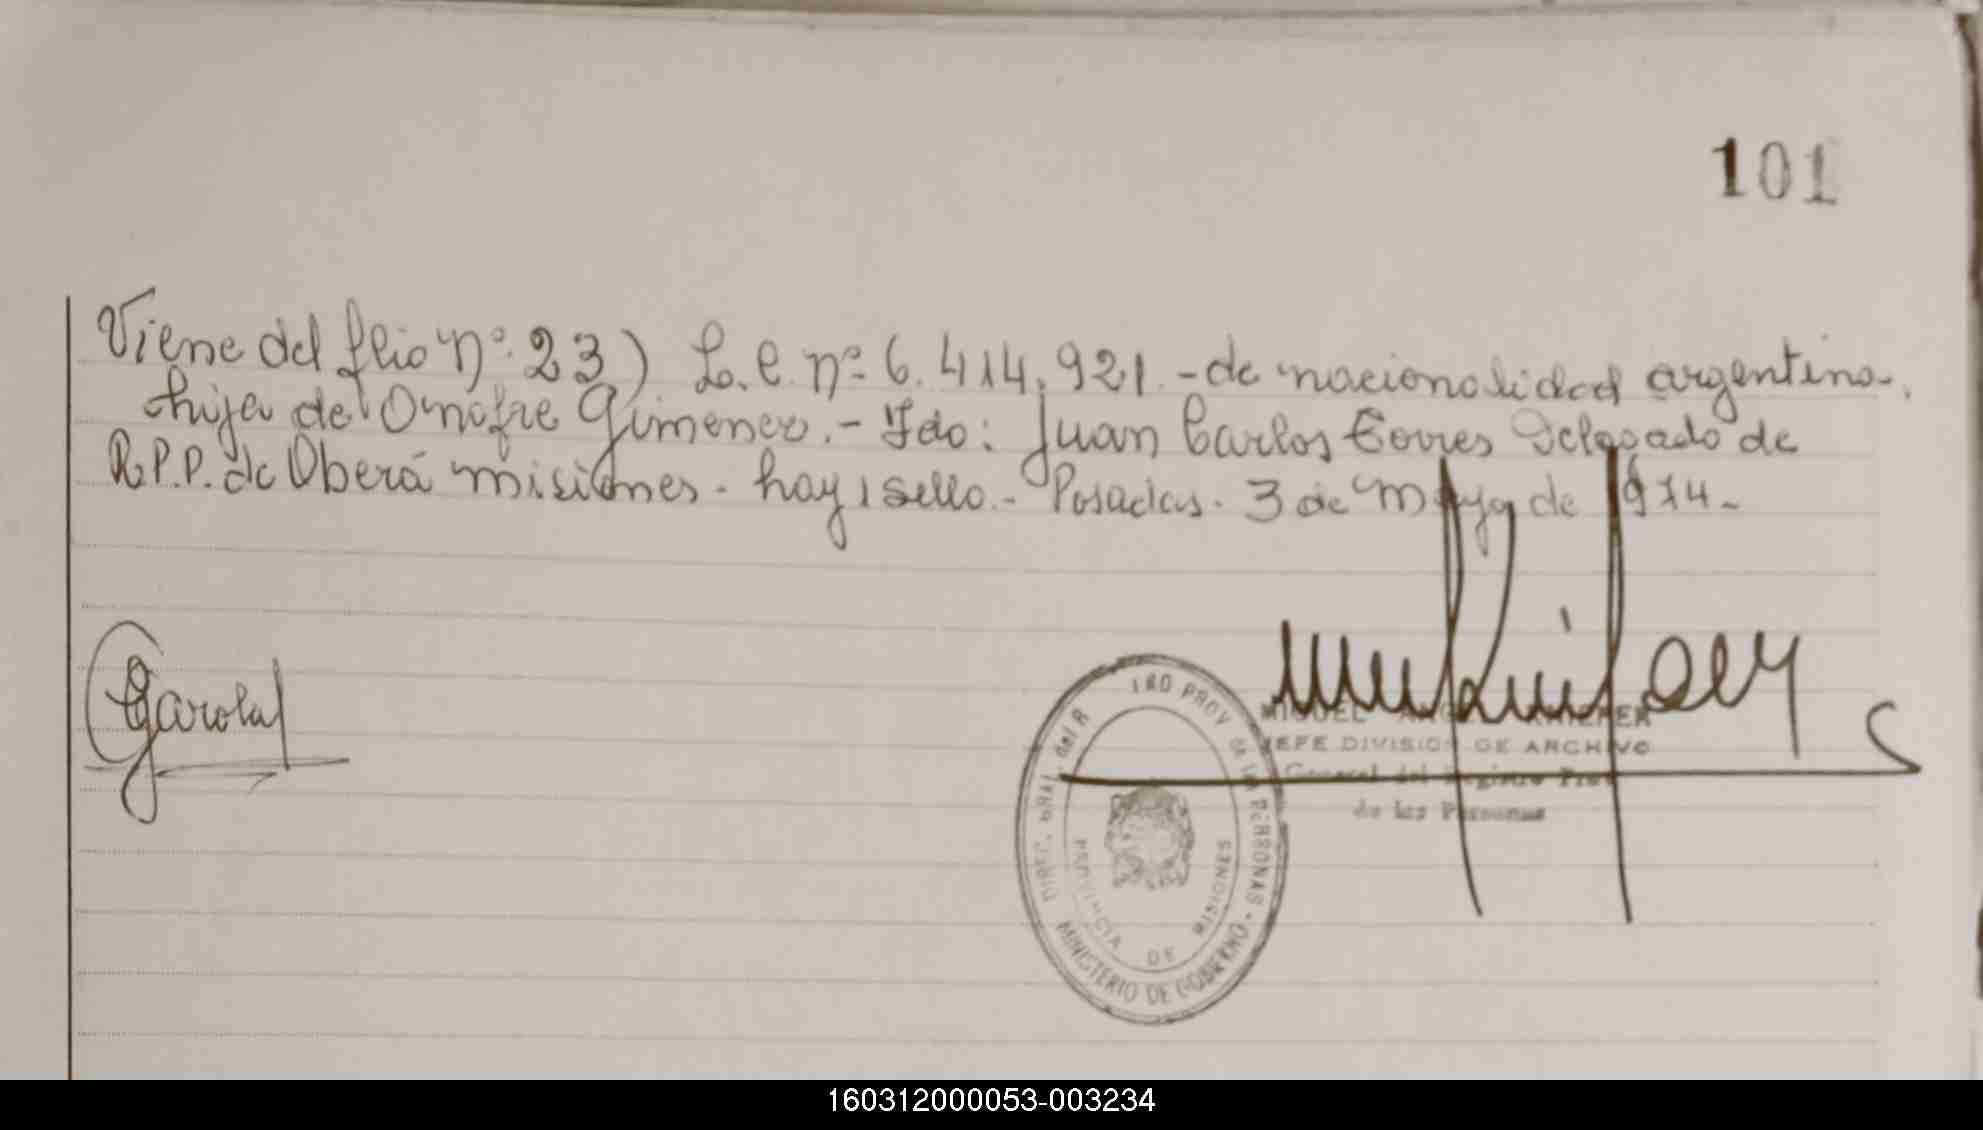 101
Viene del flio nº. 23) L.C. nº 6.414.921.- de nacionalidad argentina.
hija de Onofre Gimenez.- Fdo: Juan Carlos Torres Delegado de
R.P.P. de Oberá misiones. hay 1 sello.- Posadas. 3 de Mayo de 1974-
Garola
MIGUEL
JEFE DIVISION DE ARCHIVO
General del Registro Prov
de las Personas
DIREC. GRAL. del R TRO PROV de las PERSONAS - MINISTERIO DE GOBIERNO
PROVINCIA DE MISIONES
160312000053-003234